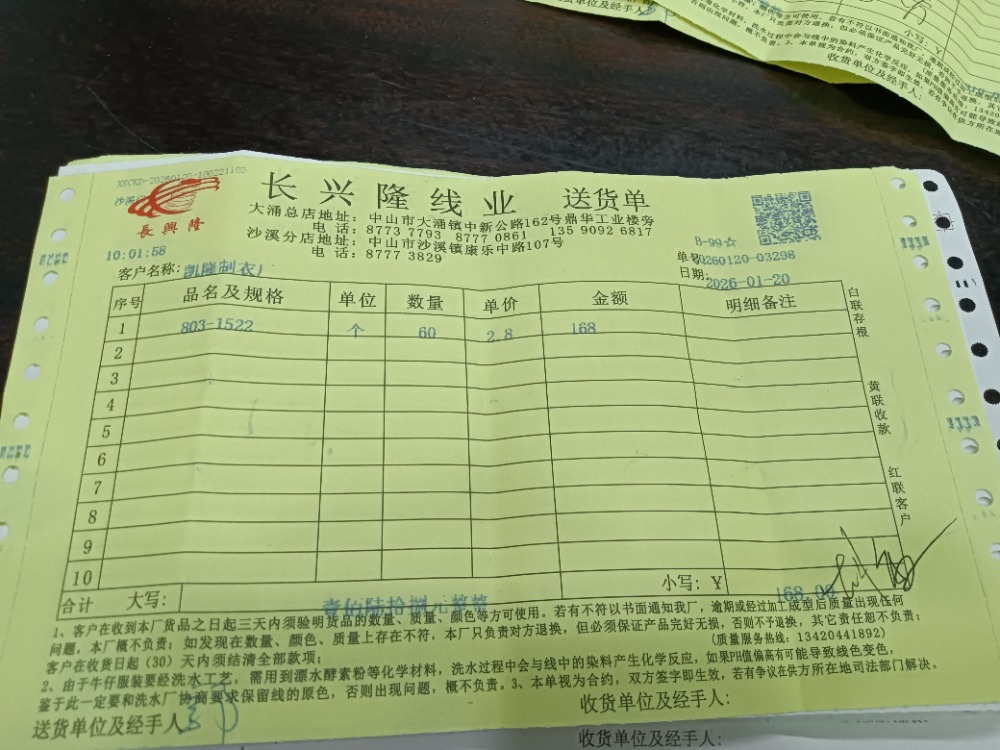 小写：Y
收货单位及经手人：
长兴隆线业 送货单
長興隆
大涌总店地址：中山市大涌镇中新公路162号鼎华工业楼旁
电 话：8773 7793 8777 0861 135 9092 6817
沙溪分店地址：中山市沙溪镇康乐中路107号
电 话：8777 3829
10:01:58
B-99☆
客户名称：凯隆制衣厂
单号：20260120-03298
日期：2026-01-20
序号 品名及规格 单位 数量 单价 金额 明细备注
1 803-1522 个 60 2.8 168
2
3
4
5
6
7
8
9
10
白联存根
黄联收款
红联客户
合计 大写：壹佰陆拾捌元整 小写：Y 168.00
1、客户在收到本厂货品之日起三天内须验明货品的数量、质量、颜色等方可使用。若有不符以书面通知我厂，逾期或经过加工成型后质量出现任何
问题，本厂概不负责；如发现在数量、颜色、质量上存在不符，本厂只负责对方退换，但必须保证产品完好无损，否则不予退换，其它责任恕不负责；
客户在收货日起（30）天内须结清全部款项；
(质量服务热线：13420441892)
2、由于牛仔服装要经洗水工艺，需用到漂水酵素粉等化学材料，洗水过程中会与线中的染料产生化学反应，如果PH值偏高有可能导致线色变色，
鉴于此一定要和洗水厂协商要求保留线的原色，否则出现问题，概不负责。3、本单视为合约，双方签字即生效，若有争议在供方所在地司法部门解决。
送货单位及经手人
收货单位及经手人：
收货单位及经手人：